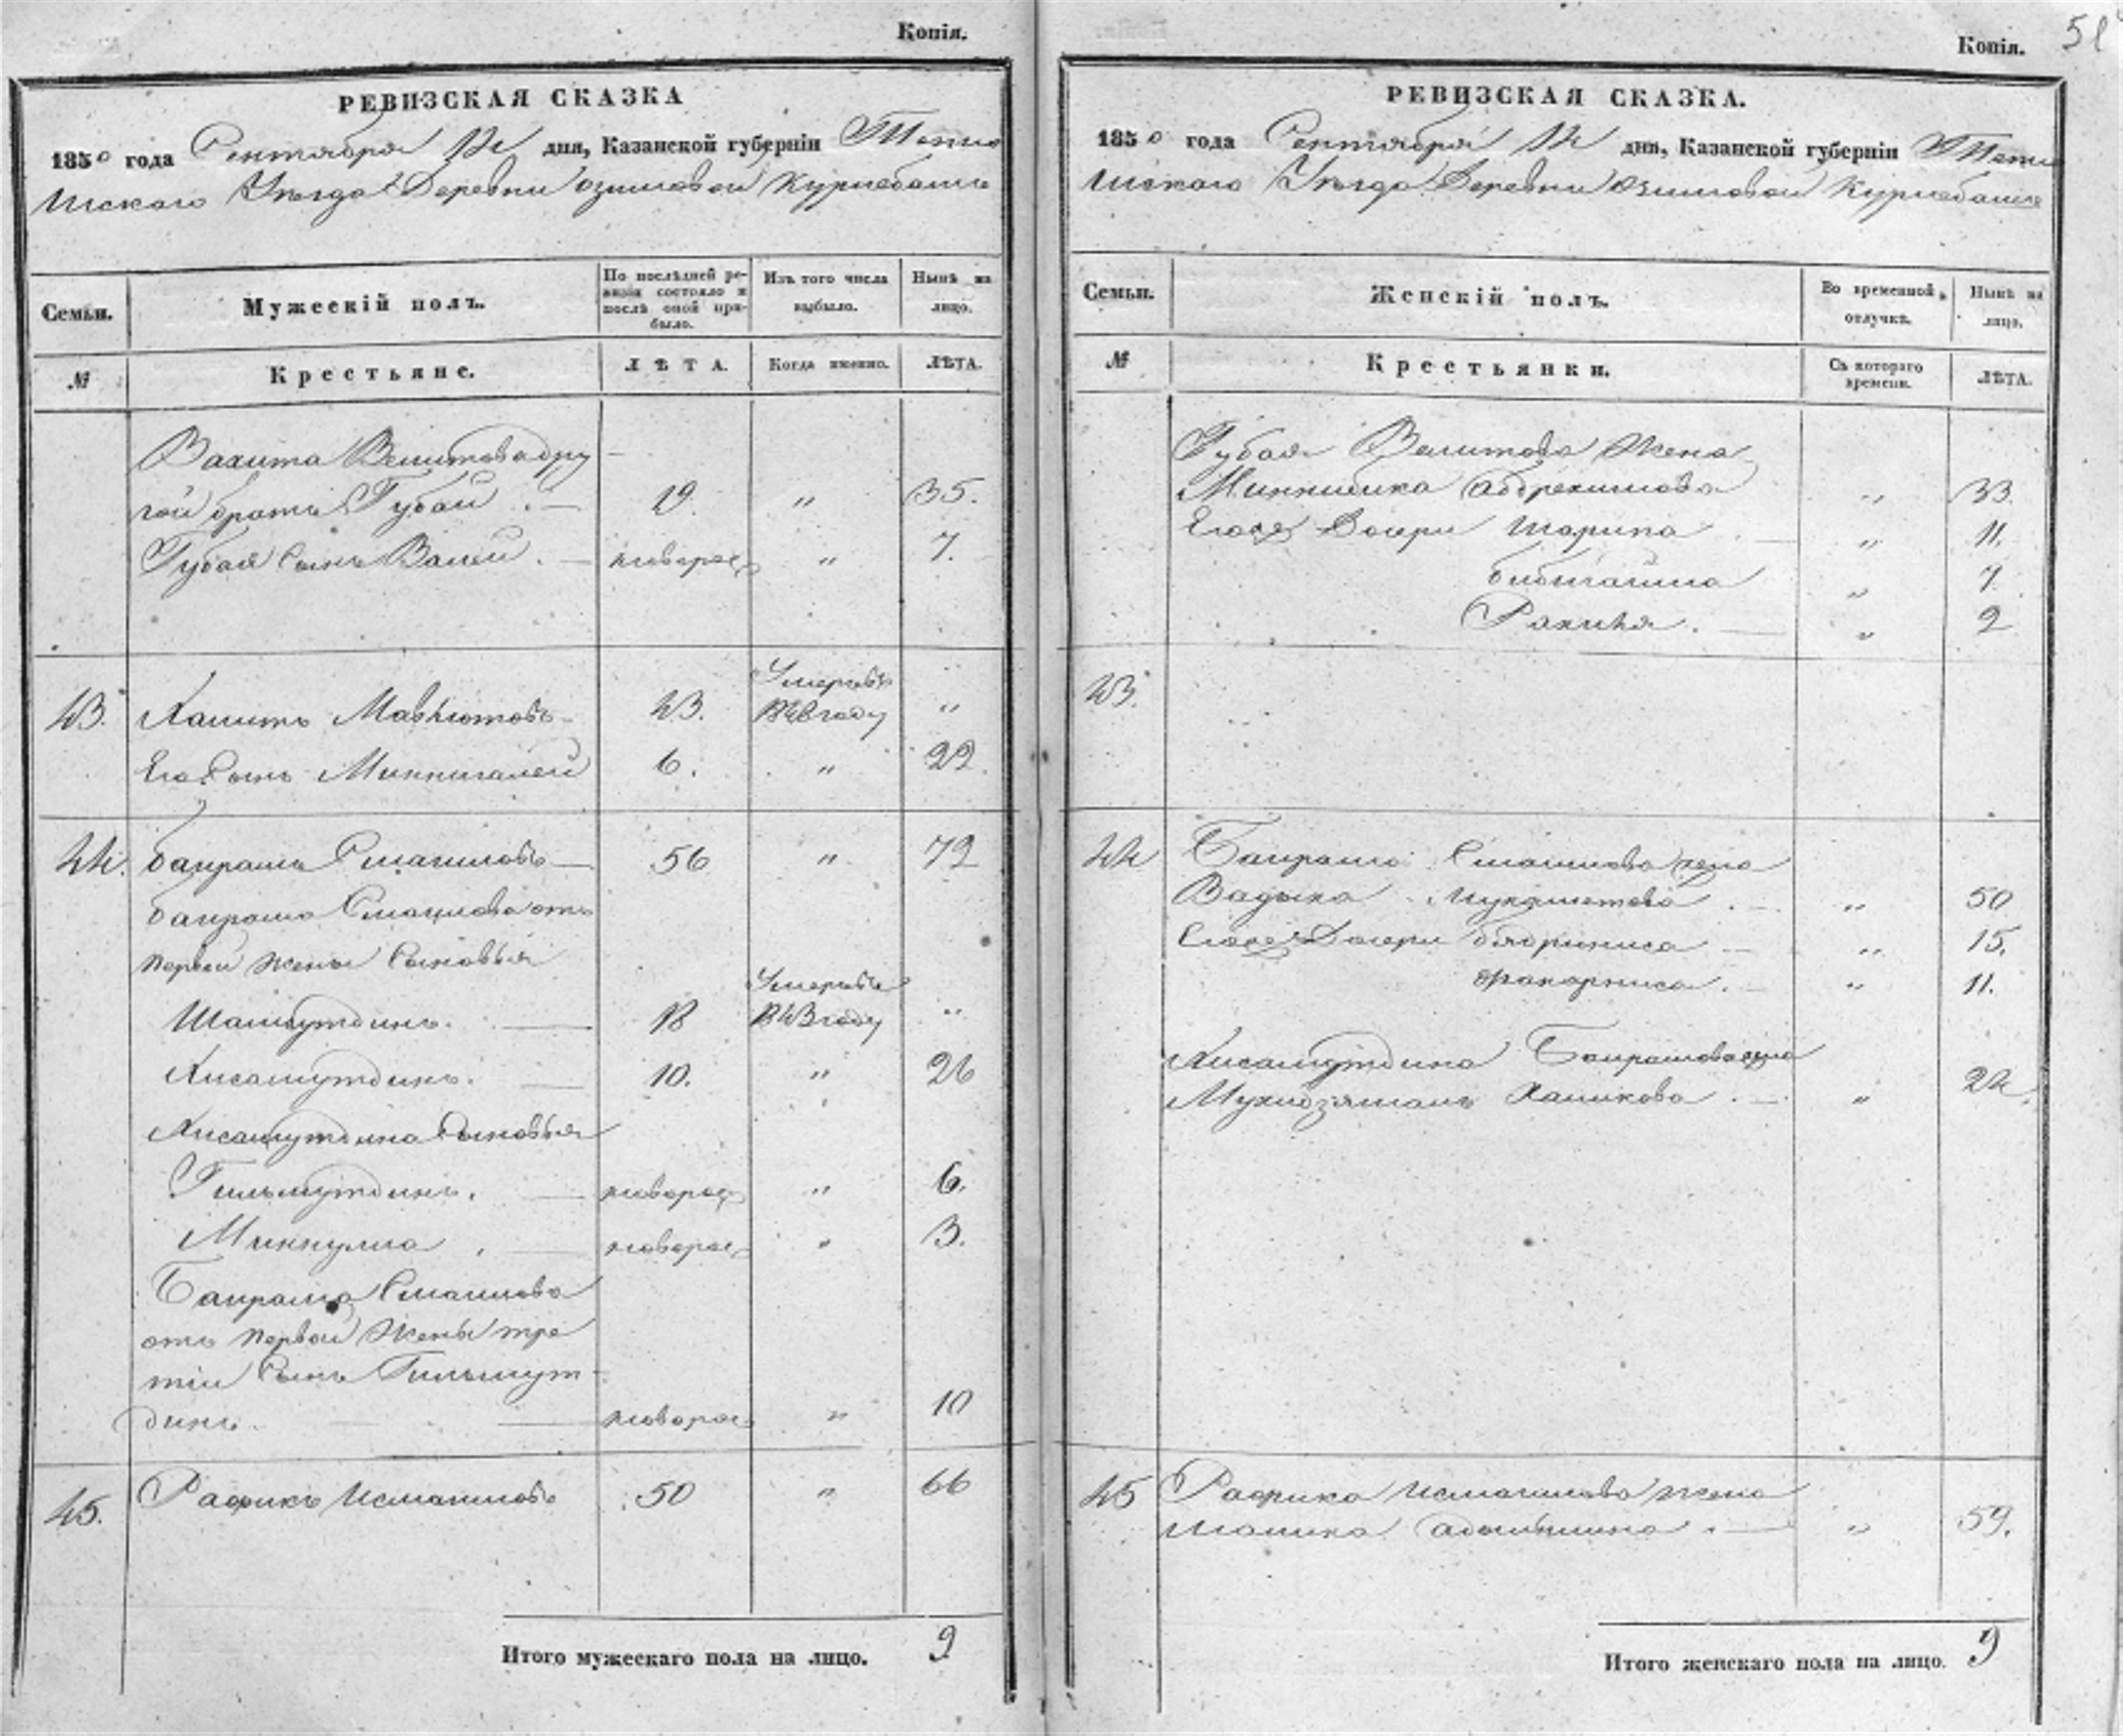 Копія.
РЕВИЗСКАЯ СКАЗКА
1850 года Сентября 14 дня, Казанской губерніи Тетю
шскаго Уѣзда Деревни
Семьи.
Мужескій полъ.
По послѣдней ре-
визіи состояло и
послѣ оной при-
было.
Изъ того числа
выбыло.
Нынѣ на
лицо.
№
Крестьяне.
ЛѢТА.
Когда именно.
ЛѢТА.
Вахита Велитова дру
гой братъ Губай . — 19. " 35.
Губая Сынъ Валей . — новорож " 7.
43. Халитъ Мавлютовъ 43. Умеръ въ 1848 году "
Его Сынъ Миннигалей 6. " 22.
44. баирамъ Смагиловъ — 56 " 72
баирама Смагилова отъ
первой жены Сыновья
Шамсутдинъ. — 18 Умеръ въ 1843 году "
Хисамутдинъ. — 10. " 26
Хисамутдина Сыновья
Гильмутдинъ. — новорож " 6.
Миннулла . — новорож " 3.
Баирама Смаилова
отъ первой Жены тре
тій Сынъ Гильмут-
динъ. — новорож " 10
45. Рафикъ Исмагиловъ 50 " 66
Итого мужескаго пола на лицо. 9
Копія. 51
РЕВИЗСКАЯ СКАЗКА.
1850 года Сентября 14 дня, Казанской губерніи Тетю
шскаго Уѣзда Деревни
Семьи.
Женскій полъ.
Во временной
отлучкѣ.
Нынѣ на
лицо.
№
Крестьянки.
Съ котораго
времени.
ЛѢТА.
Губая Велитова Жена
" 33.
Его Дочери Шарипа . — " 11.
" 7.
Ракия . — " 2
43.
44 Баирама Смаилова жена
" 50
" 15.
" 11.
Хисамутдина Баирамова жена
Халикова . — " 24.
45 Рафика Исмагилова жена
" 59.
Итого женскаго пола на лицо. 9